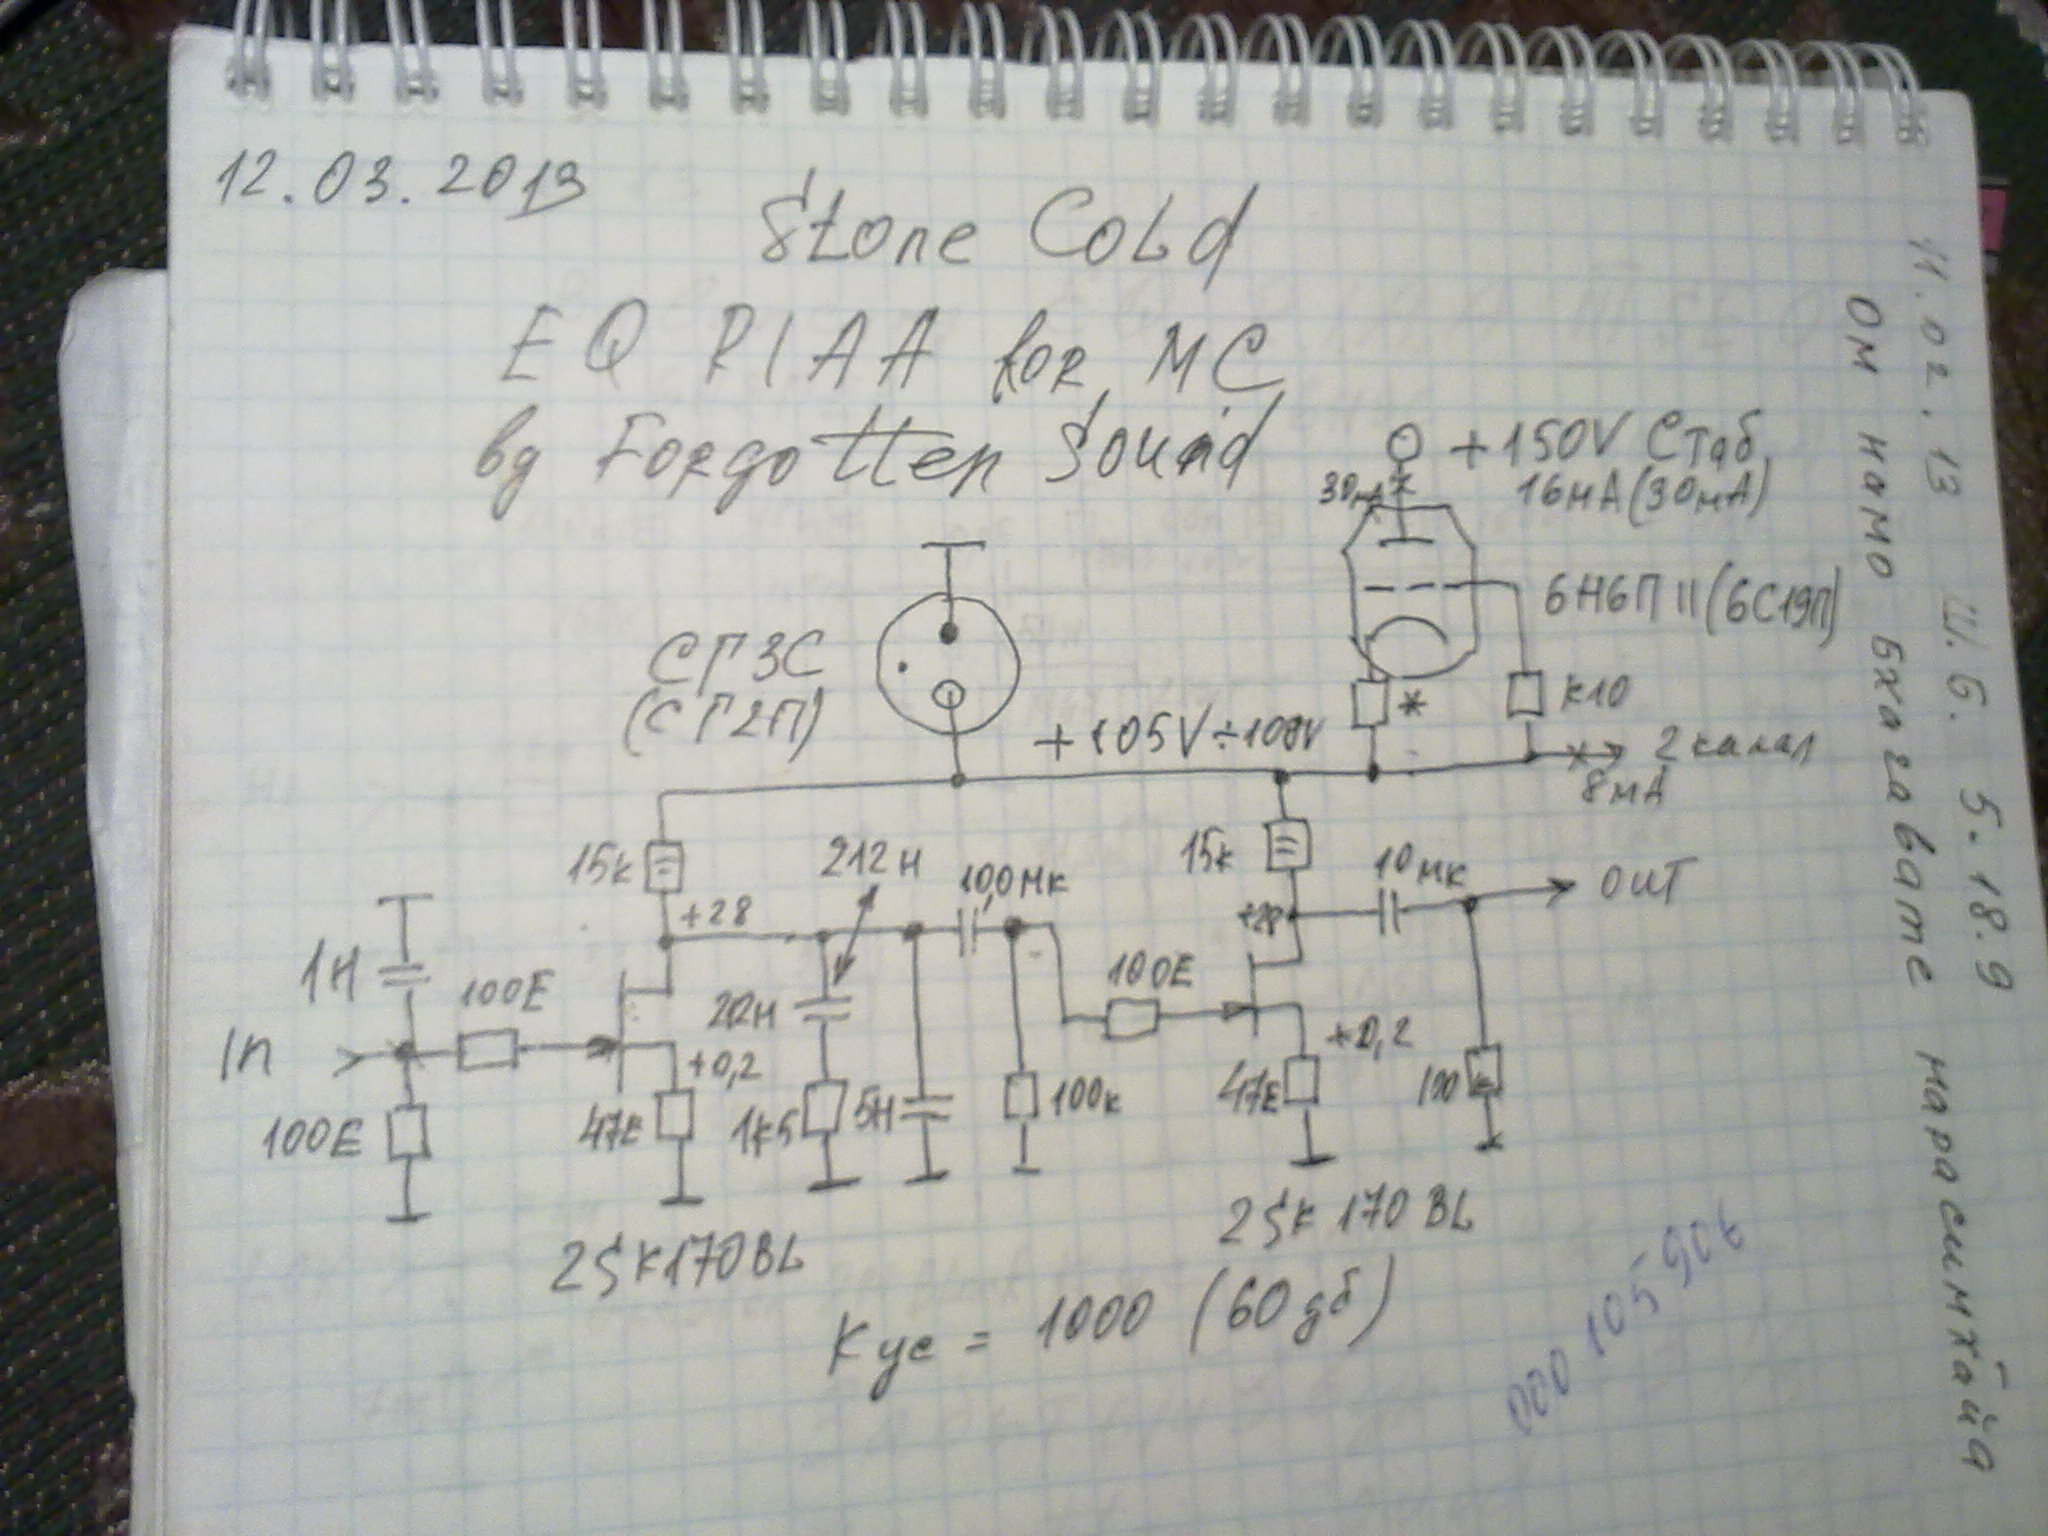 12.03.2013
Stone Cold
EQ RIAA for MC
by Forgotten Sound
+150V Стаб.
30мА
16мА (30мА)
6Н6П II (6С19П)
СГ3С
(СГ2П)
*
к10
+105V÷108V
2 канал
8мА
15к
212н
15к
10мк
OUT
+28
+28
1н
100Е
100Е
In
20н
+0,2
+0,2
100Е
47Е
1к5
5н
100к
47Е
100к
2SK170BL
2SK170BL
Кус = 1000 (60дб)
000 105 90
11.02.13 Ш.Б. 5.18.9
Ом намо бхагавате нарасимхайа